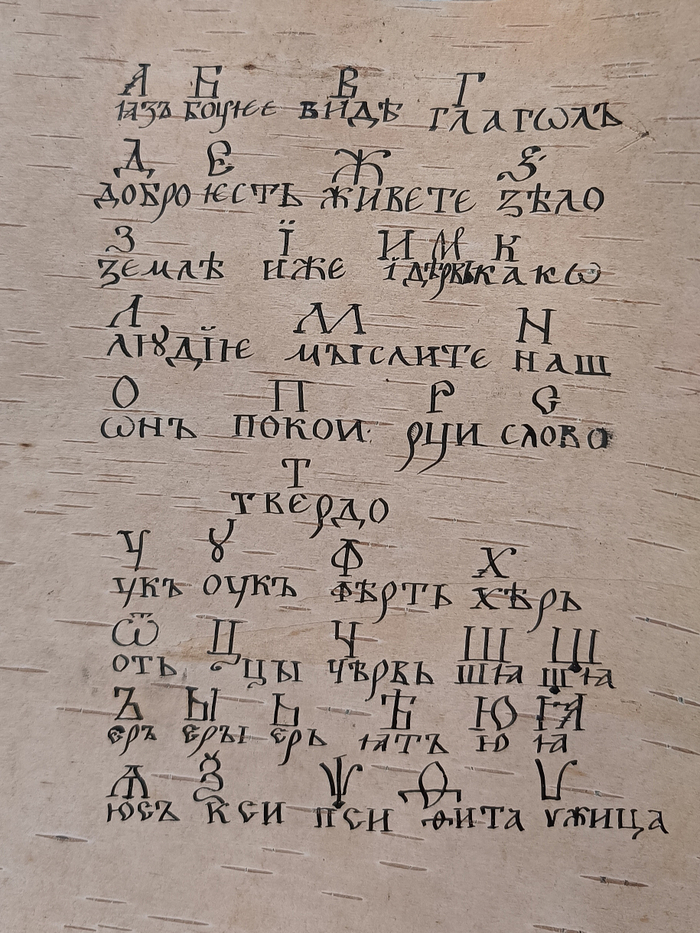 А Б В Г
ꙗзъ боукѥ видѣ глаголъ
Д Є Ж Ѕ
добро ѥсть живете зѣло
З Ї И К
землѣ иже їдѣрвь како
Л М Н
люꙋдїѥ мыслите наш
О П Р С
ѡнъ покои рци слово
Т
твердо
Ч Ꙋ Ф Х
укъ оукъ фѣрть хѣрь
Ѿ Ц Ч Ш Щ
оть цы чѣрвь шꙗ щꙗ
Ъ Ы Ь Ѣ Ю Ꙗ
єръ єры єрь ꙗтъ ю ꙗ
Ѧ Ѯ Ѱ Ѳ Ѵ
юсъ кси пси фита ѵжица